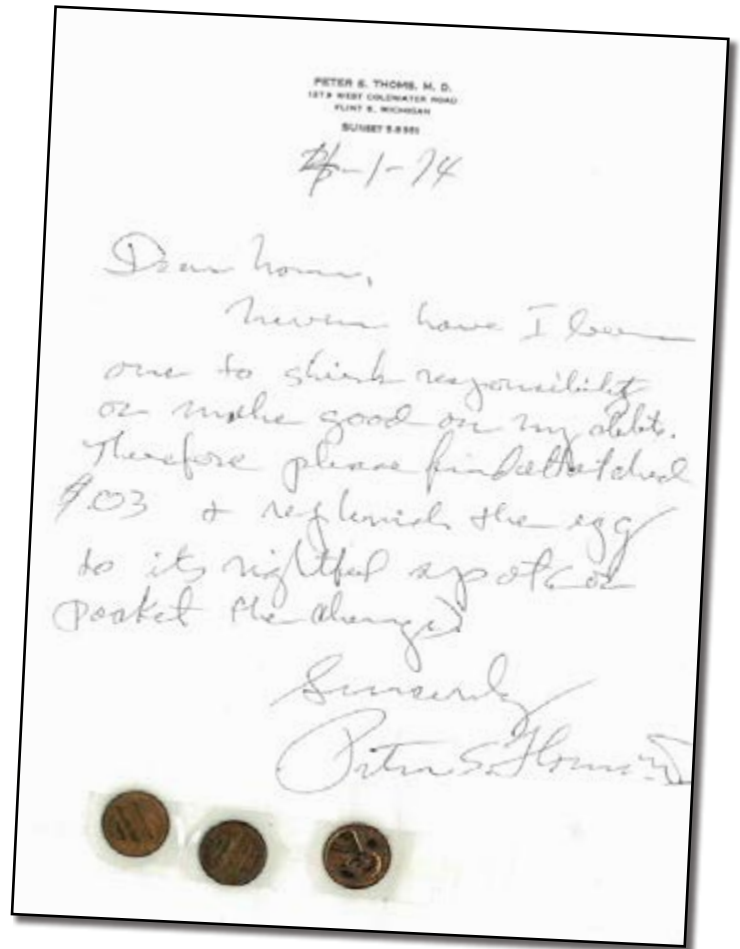 PETER S. THOMS, M. D.
WEST COLDWATER ROAD
FLINT 5, MICHIGAN
SUNSET
-1-74
Dear
have I been
one to shirk responsibility
or make good on my debts.
Therefore please find attached
$.03 + replenish the egg
to its rightful spot (or
pocket the change)
Sincerely
Peter S. Thoms MD